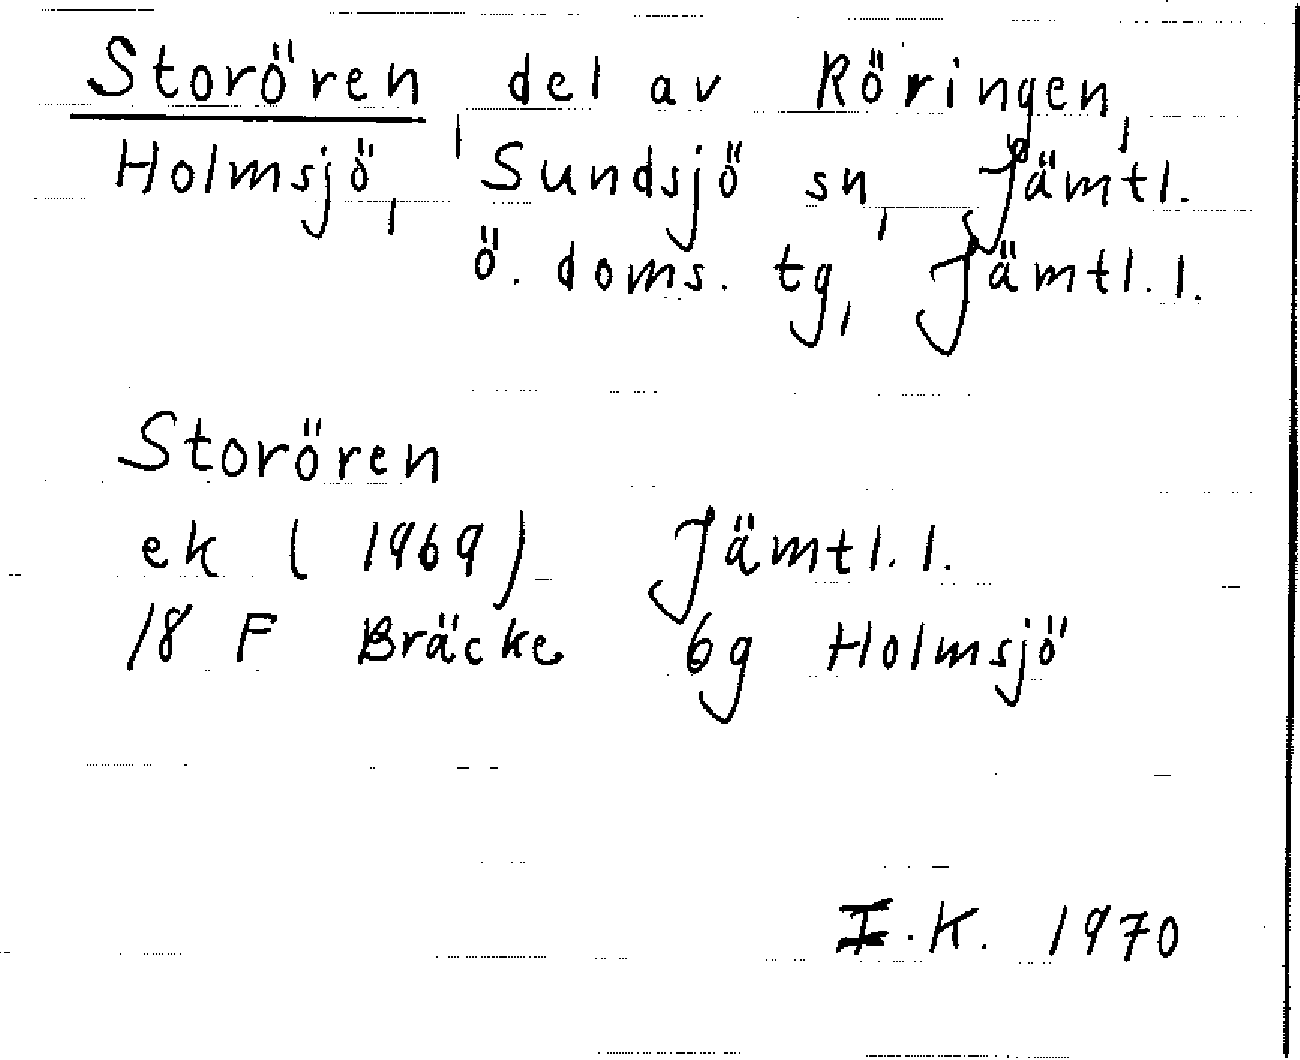 Storören, del av Röringen,
Holmsjö, Sundsjö sn, Jämtl.
ö. doms. tg, Jämtl. l.
Storören
ek (1969) Jämtl. l.
18 F Bräcke 6g Holmsjö
I.K. 1970